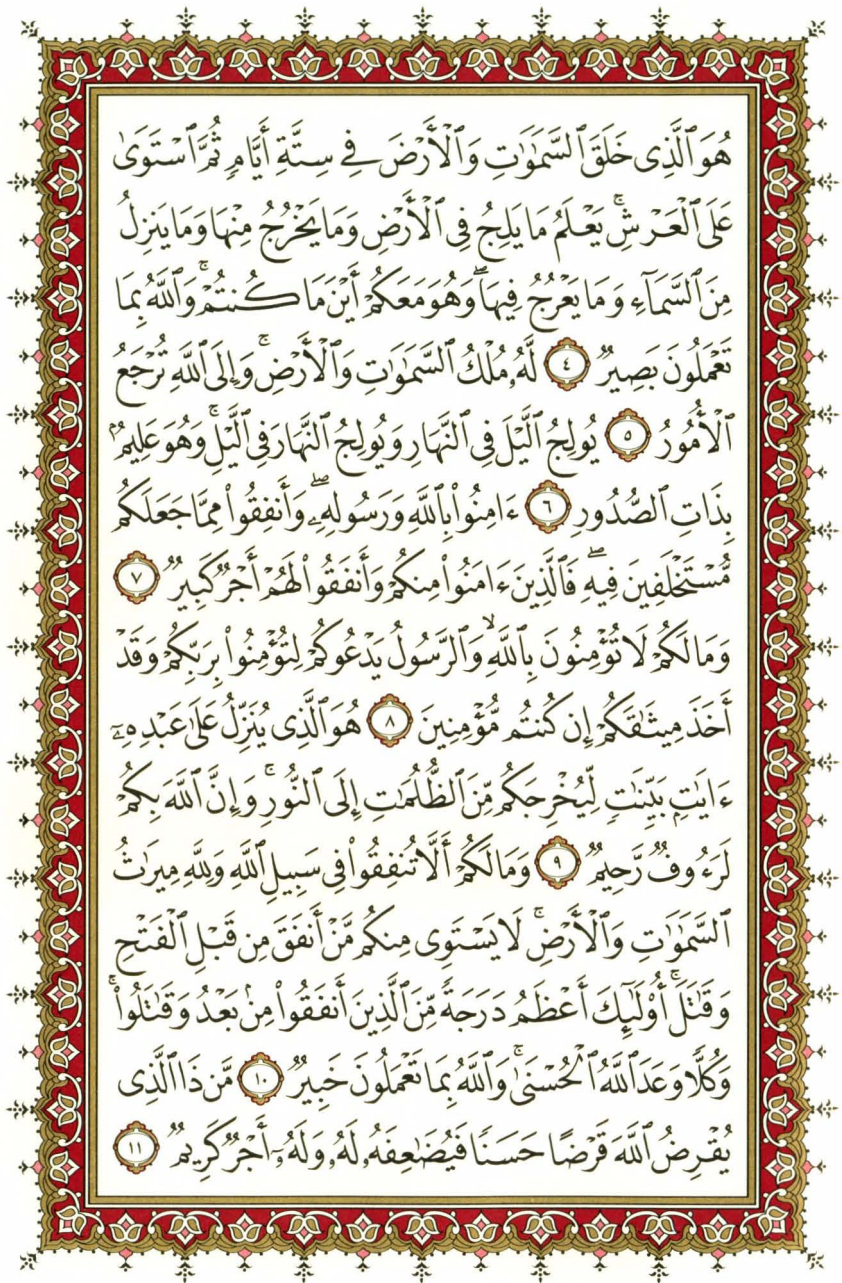 هُوَ ٱلَّذِى خَلَقَ ٱلسَّمَٰوَٰتِ وَٱلْأَرْضَ فِى سِتَّةِ أَيَّامٍ ثُمَّ ٱسْتَوَىٰ
عَلَى ٱلْعَرْشِ ۚ يَعْلَمُ مَا يَلِجُ فِى ٱلْأَرْضِ وَمَا يَخْرُجُ مِنْهَا وَمَا يَنزِلُ
مِنَ ٱلسَّمَآءِ وَمَا يَعْرُجُ فِيهَا ۖ وَهُوَ مَعَكُمْ أَيْنَ مَا كُنتُمْ ۚ وَٱللَّهُ بِمَا
تَعْمَلُونَ بَصِيرٌ ٤ لَّهُۥ مُلْكُ ٱلسَّمَٰوَٰتِ وَٱلْأَرْضِ ۚ وَإِلَى ٱللَّهِ تُرْجَعُ
ٱلْأُمُورُ ٥ يُولِجُ ٱلَّيْلَ فِى ٱلنَّهَارِ وَيُولِجُ ٱلنَّهَارَ فِى ٱلَّيْلِ ۚ وَهُوَ عَلِيمٌۢ
بِذَاتِ ٱلصُّدُورِ ٦ ءَامِنُوا۟ بِٱللَّهِ وَرَسُولِهِۦ ۖ وَأَنفِقُوا۟ مِمَّا جَعَلَكُم
مُّسْتَخْلَفِينَ فِيهِ ۖ فَٱلَّذِينَ ءَامَنُوا۟ مِنكُمْ وَأَنفَقُوا۟ لَهُمْ أَجْرٌ كَبِيرٌ ٧
وَمَا لَكُمْ لَا تُؤْمِنُونَ بِٱللَّهِ ۙ وَٱلرَّسُولُ يَدْعُوكُمْ لِتُؤْمِنُوا۟ بِرَبِّكُمْ وَقَدْ
أَخَذَ مِيثَٰقَكُمْ إِن كُنتُم مُّؤْمِنِينَ ٨ هُوَ ٱلَّذِى يُنَزِّلُ عَلَىٰ عَبْدِهِۦٓ
ءَايَٰتٍۭ بَيِّنَٰتٍ لِّيُخْرِجَكُم مِّنَ ٱلظُّلُمَٰتِ إِلَى ٱلنُّورِ ۚ وَإِنَّ ٱللَّهَ بِكُمْ
لَرَءُوفٌ رَّحِيمٌ ٩ وَمَا لَكُمْ أَلَّا تُنفِقُوا۟ فِى سَبِيلِ ٱللَّهِ وَلِلَّهِ مِيرَٰثُ
ٱلسَّمَٰوَٰتِ وَٱلْأَرْضِ ۚ لَا يَسْتَوِى مِنكُم مَّنْ أَنفَقَ مِن قَبْلِ ٱلْفَتْحِ
وَقَٰتَلَ ۚ أُو۟لَٰٓئِكَ أَعْظَمُ دَرَجَةً مِّنَ ٱلَّذِينَ أَنفَقُوا۟ مِنۢ بَعْدُ وَقَٰتَلُوا۟ ۚ
وَكُلًّا وَعَدَ ٱللَّهُ ٱلْحُسْنَىٰ ۚ وَٱللَّهُ بِمَا تَعْمَلُونَ خَبِيرٌ ١٠ مَّن ذَا ٱلَّذِى
يُقْرِضُ ٱللَّهَ قَرْضًا حَسَنًا فَيُضَٰعِفَهُۥ لَهُۥ وَلَهُۥٓ أَجْرٌ كَرِيمٌ ١١